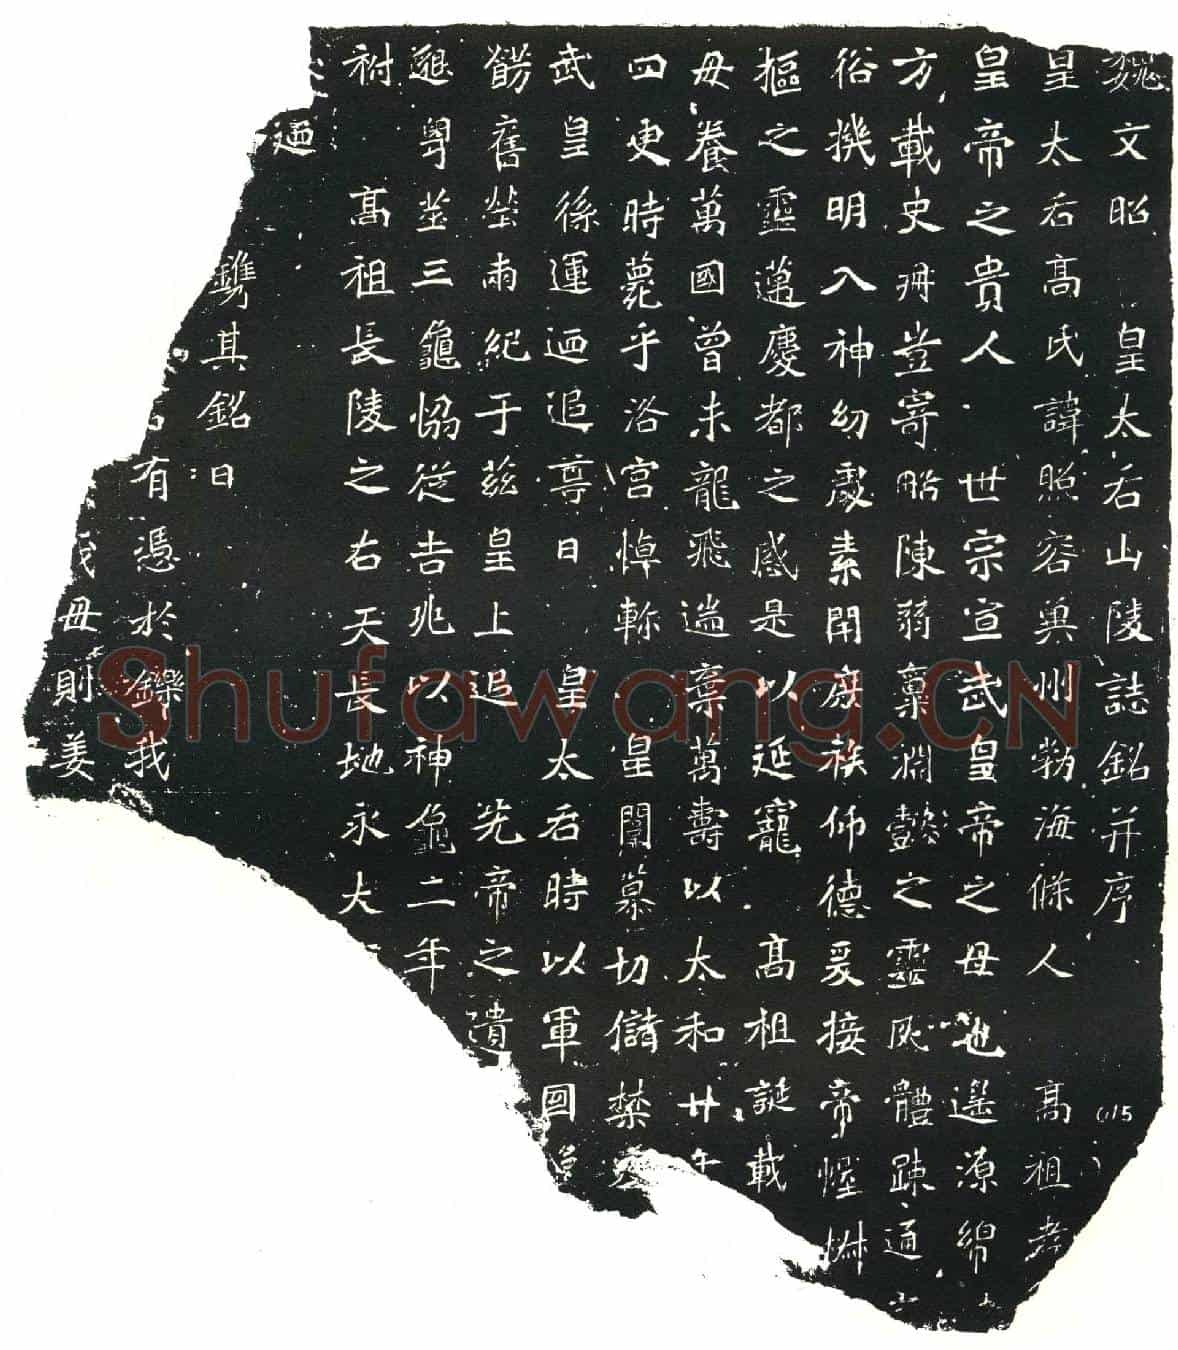 魏文昭 皇太后山陵誌銘并序
皇太后高氏諱照容冀州勃海條人 高祖孝
皇帝之貴人 世宗宣武皇帝之母也遥源綿
方載史冊豈寄昭陳弱稟淵懿之靈夙體踈通
俗機明入神幼處素閈庶族仰德爰接帝幄
樞之靈邁慶都之感是以延寵 高祖誕載
母養萬國曾未龍飛遄棄萬壽以太和廿
四更時薨乎洛宮悼軫 皇闈慕切儲禁
武皇係運迺追尊曰 皇太后時以軍國
餝舊塋兩紀于茲皇上追 先帝之遺
懇粤茔三龜協從吉兆以神龜二年
祔 高祖長陵之右天長地永大
迺
鐫其銘曰
有憑於鑠我
母則姜
615
Shufawang.CN